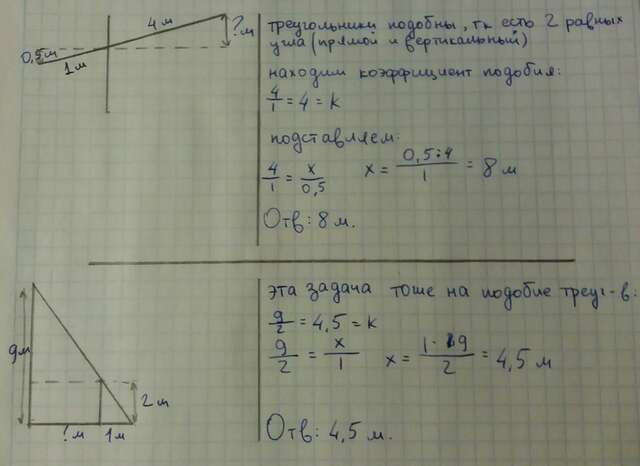 4 м
? м
0,5м
1м
треугольники подобны, тк есть 2 равных
угла (прямой и вертикальный)
находим коэффициент подобия:
4/1 = 4 = k
подставляем:
4/1 = x/0,5 x = 0,5:4/1 = 8 м
Отв: 8 м.
эта задача тоше на подобие треуг-в:
9/2 = 4,5 = k
9/2 = x/1 x = 1·9/2 = 4,5 м
9м
2 м
? м 1м
Отв: 4,5 м.